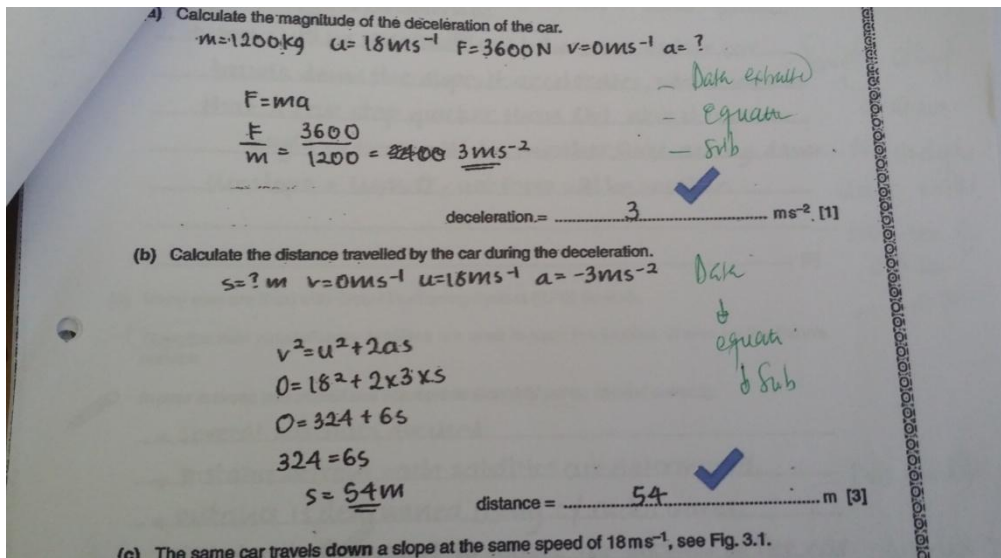 a) Calculate the magnitude of the deceleration of the car.
m=1200kg u=18ms⁻¹ F=3600N v=0ms⁻¹ a=?
- Data extracted
F=ma
- equate
F/m = 3600/1200 = 3ms⁻²
- Sub
deceleration.= 3 ms⁻². [1]
(b) Calculate the distance travelled by the car during the deceleration.
s=? m v=0ms⁻¹ u=18ms⁻¹ a=-3ms⁻²
Data
v²=u²+2as
equati
0=18²+2x3xs
Sub
0=324+6s
324=6s
s=54m
distance = 54 m [3]
(c) The same car travels down a slope at the same speed of 18ms⁻¹, see Fig. 3.1.